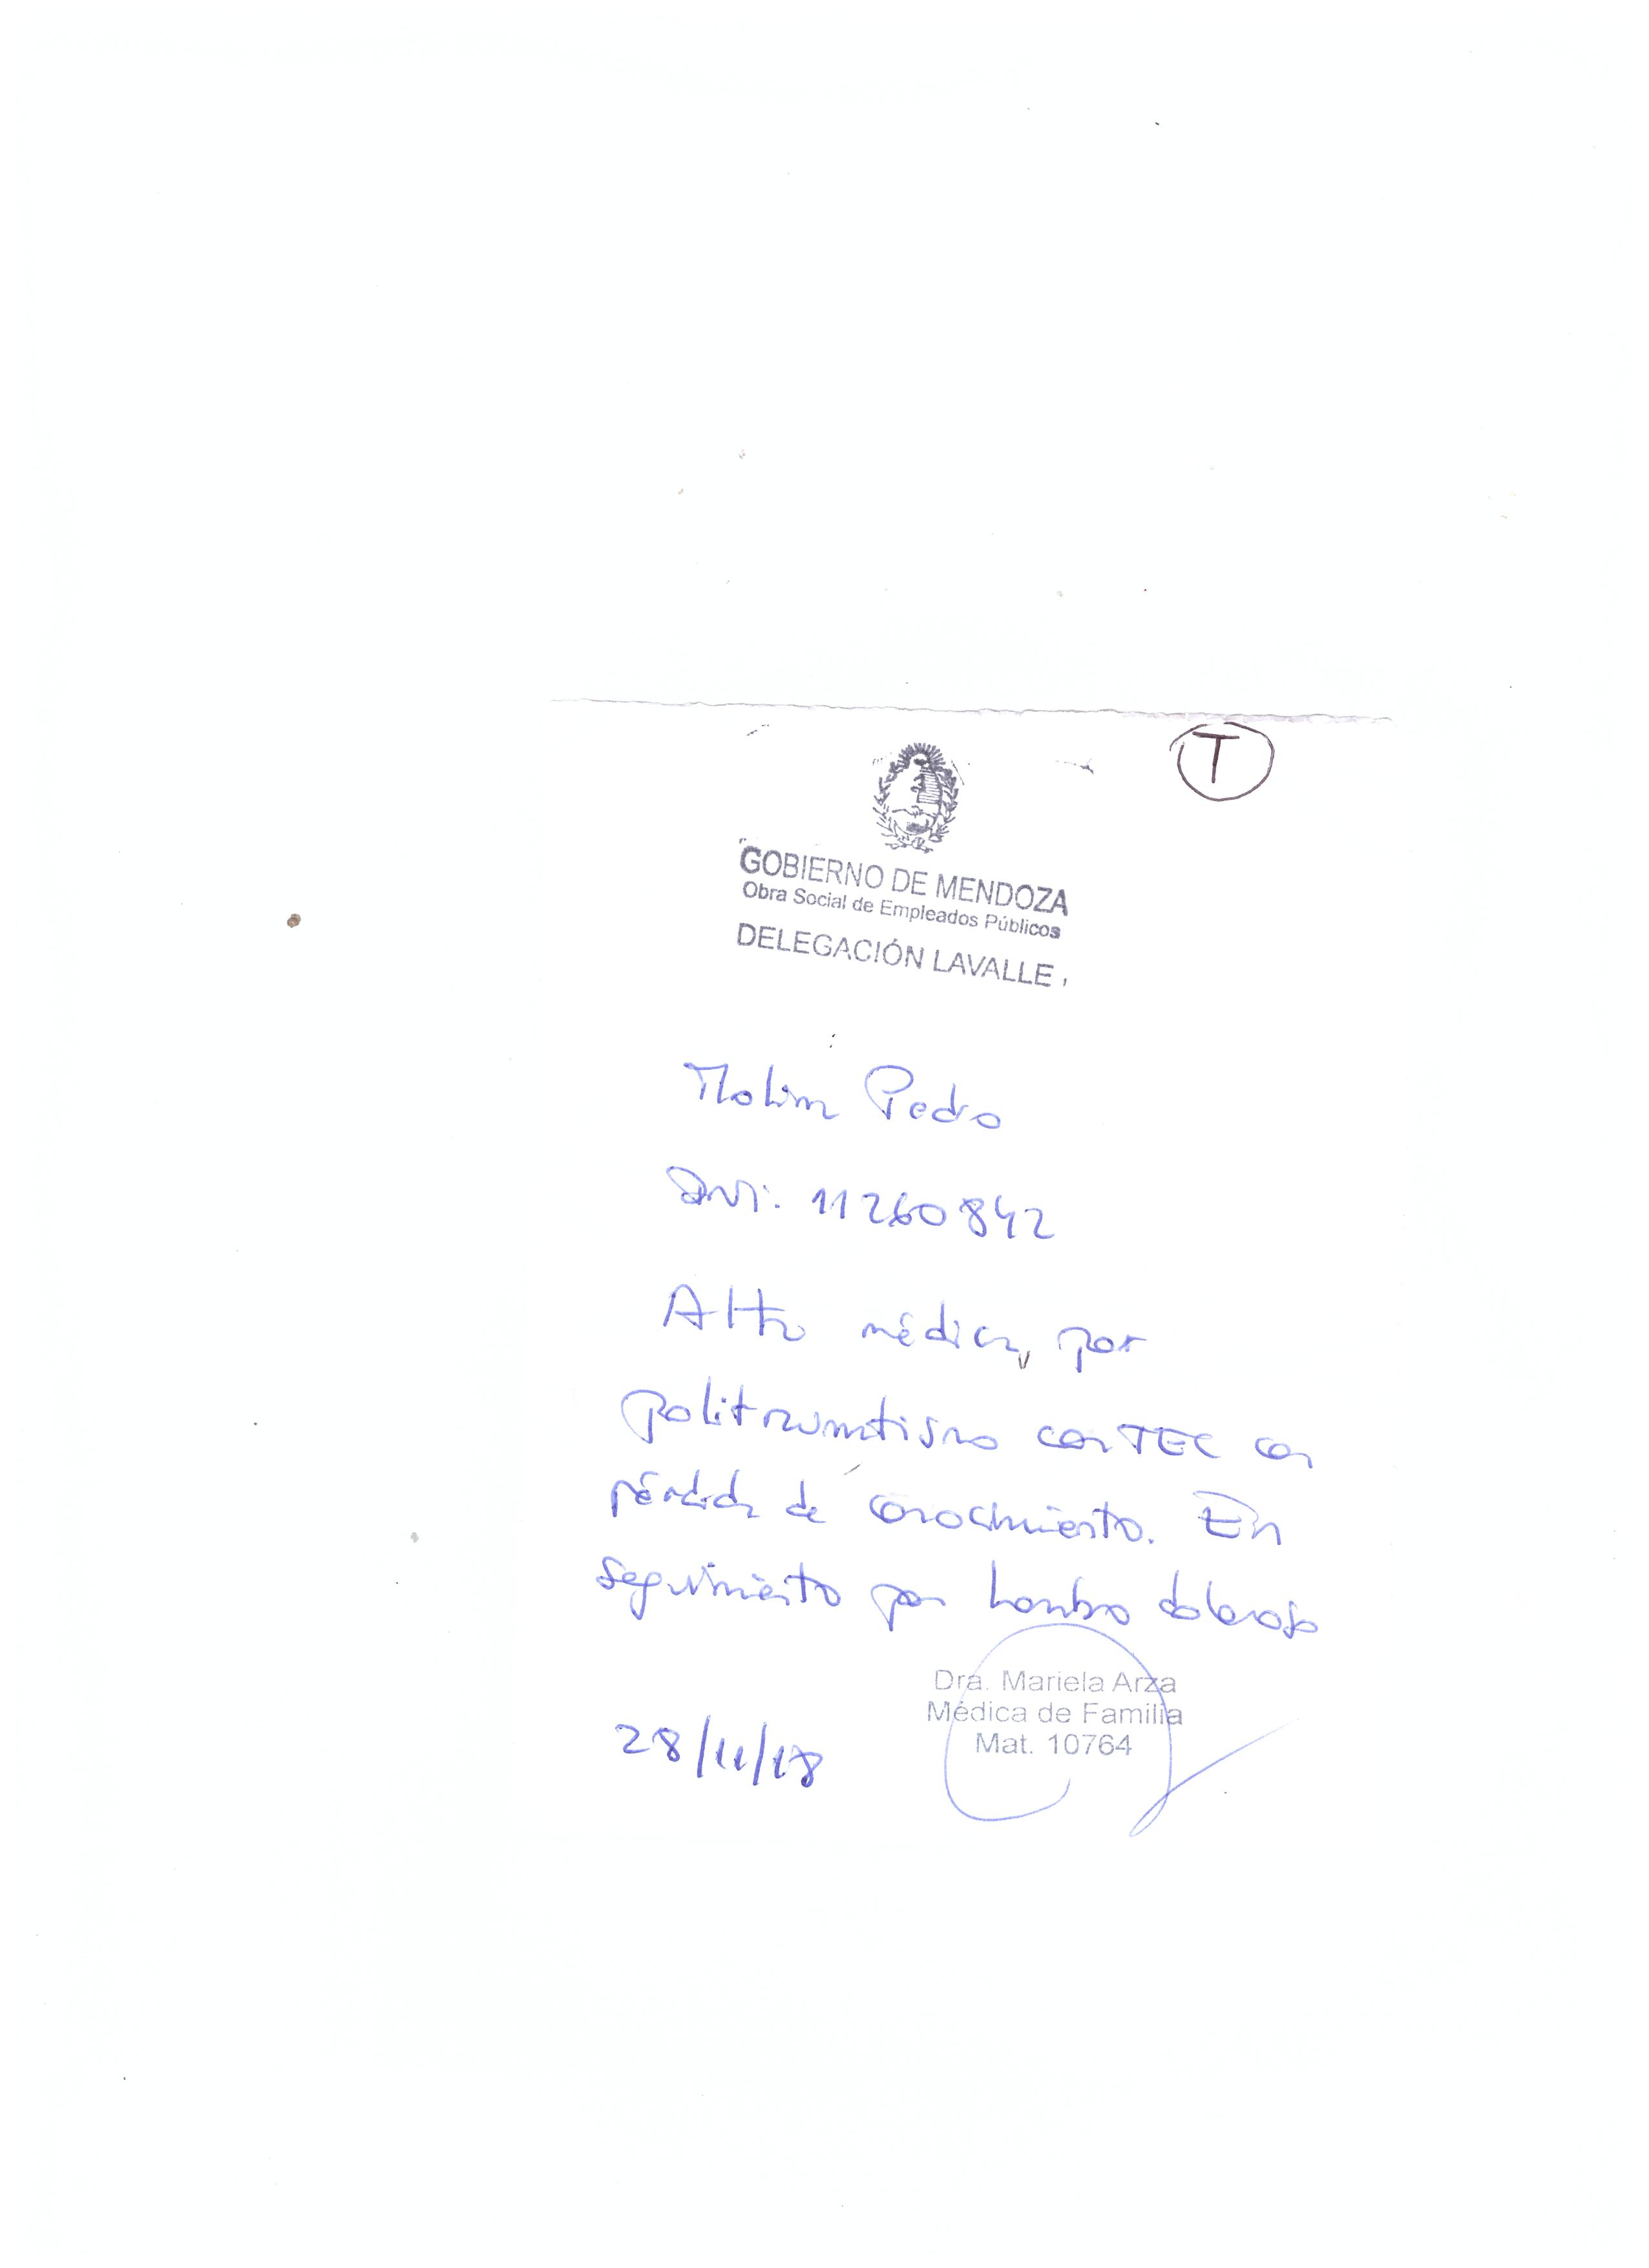 T
GOBIERNO DE MENDOZA
Obra Social de Empleados Públicos
DELEGACIÓN LAVALLE
Molina Pedro
DNI: 11260842
Alta médica, por
politraumatismo con TEC con
pérdida de conocimiento. En
seguimiento por hombro doloroso
Dra. Mariela Arza
Médica de Familia
Mat. 10764
28/11/18